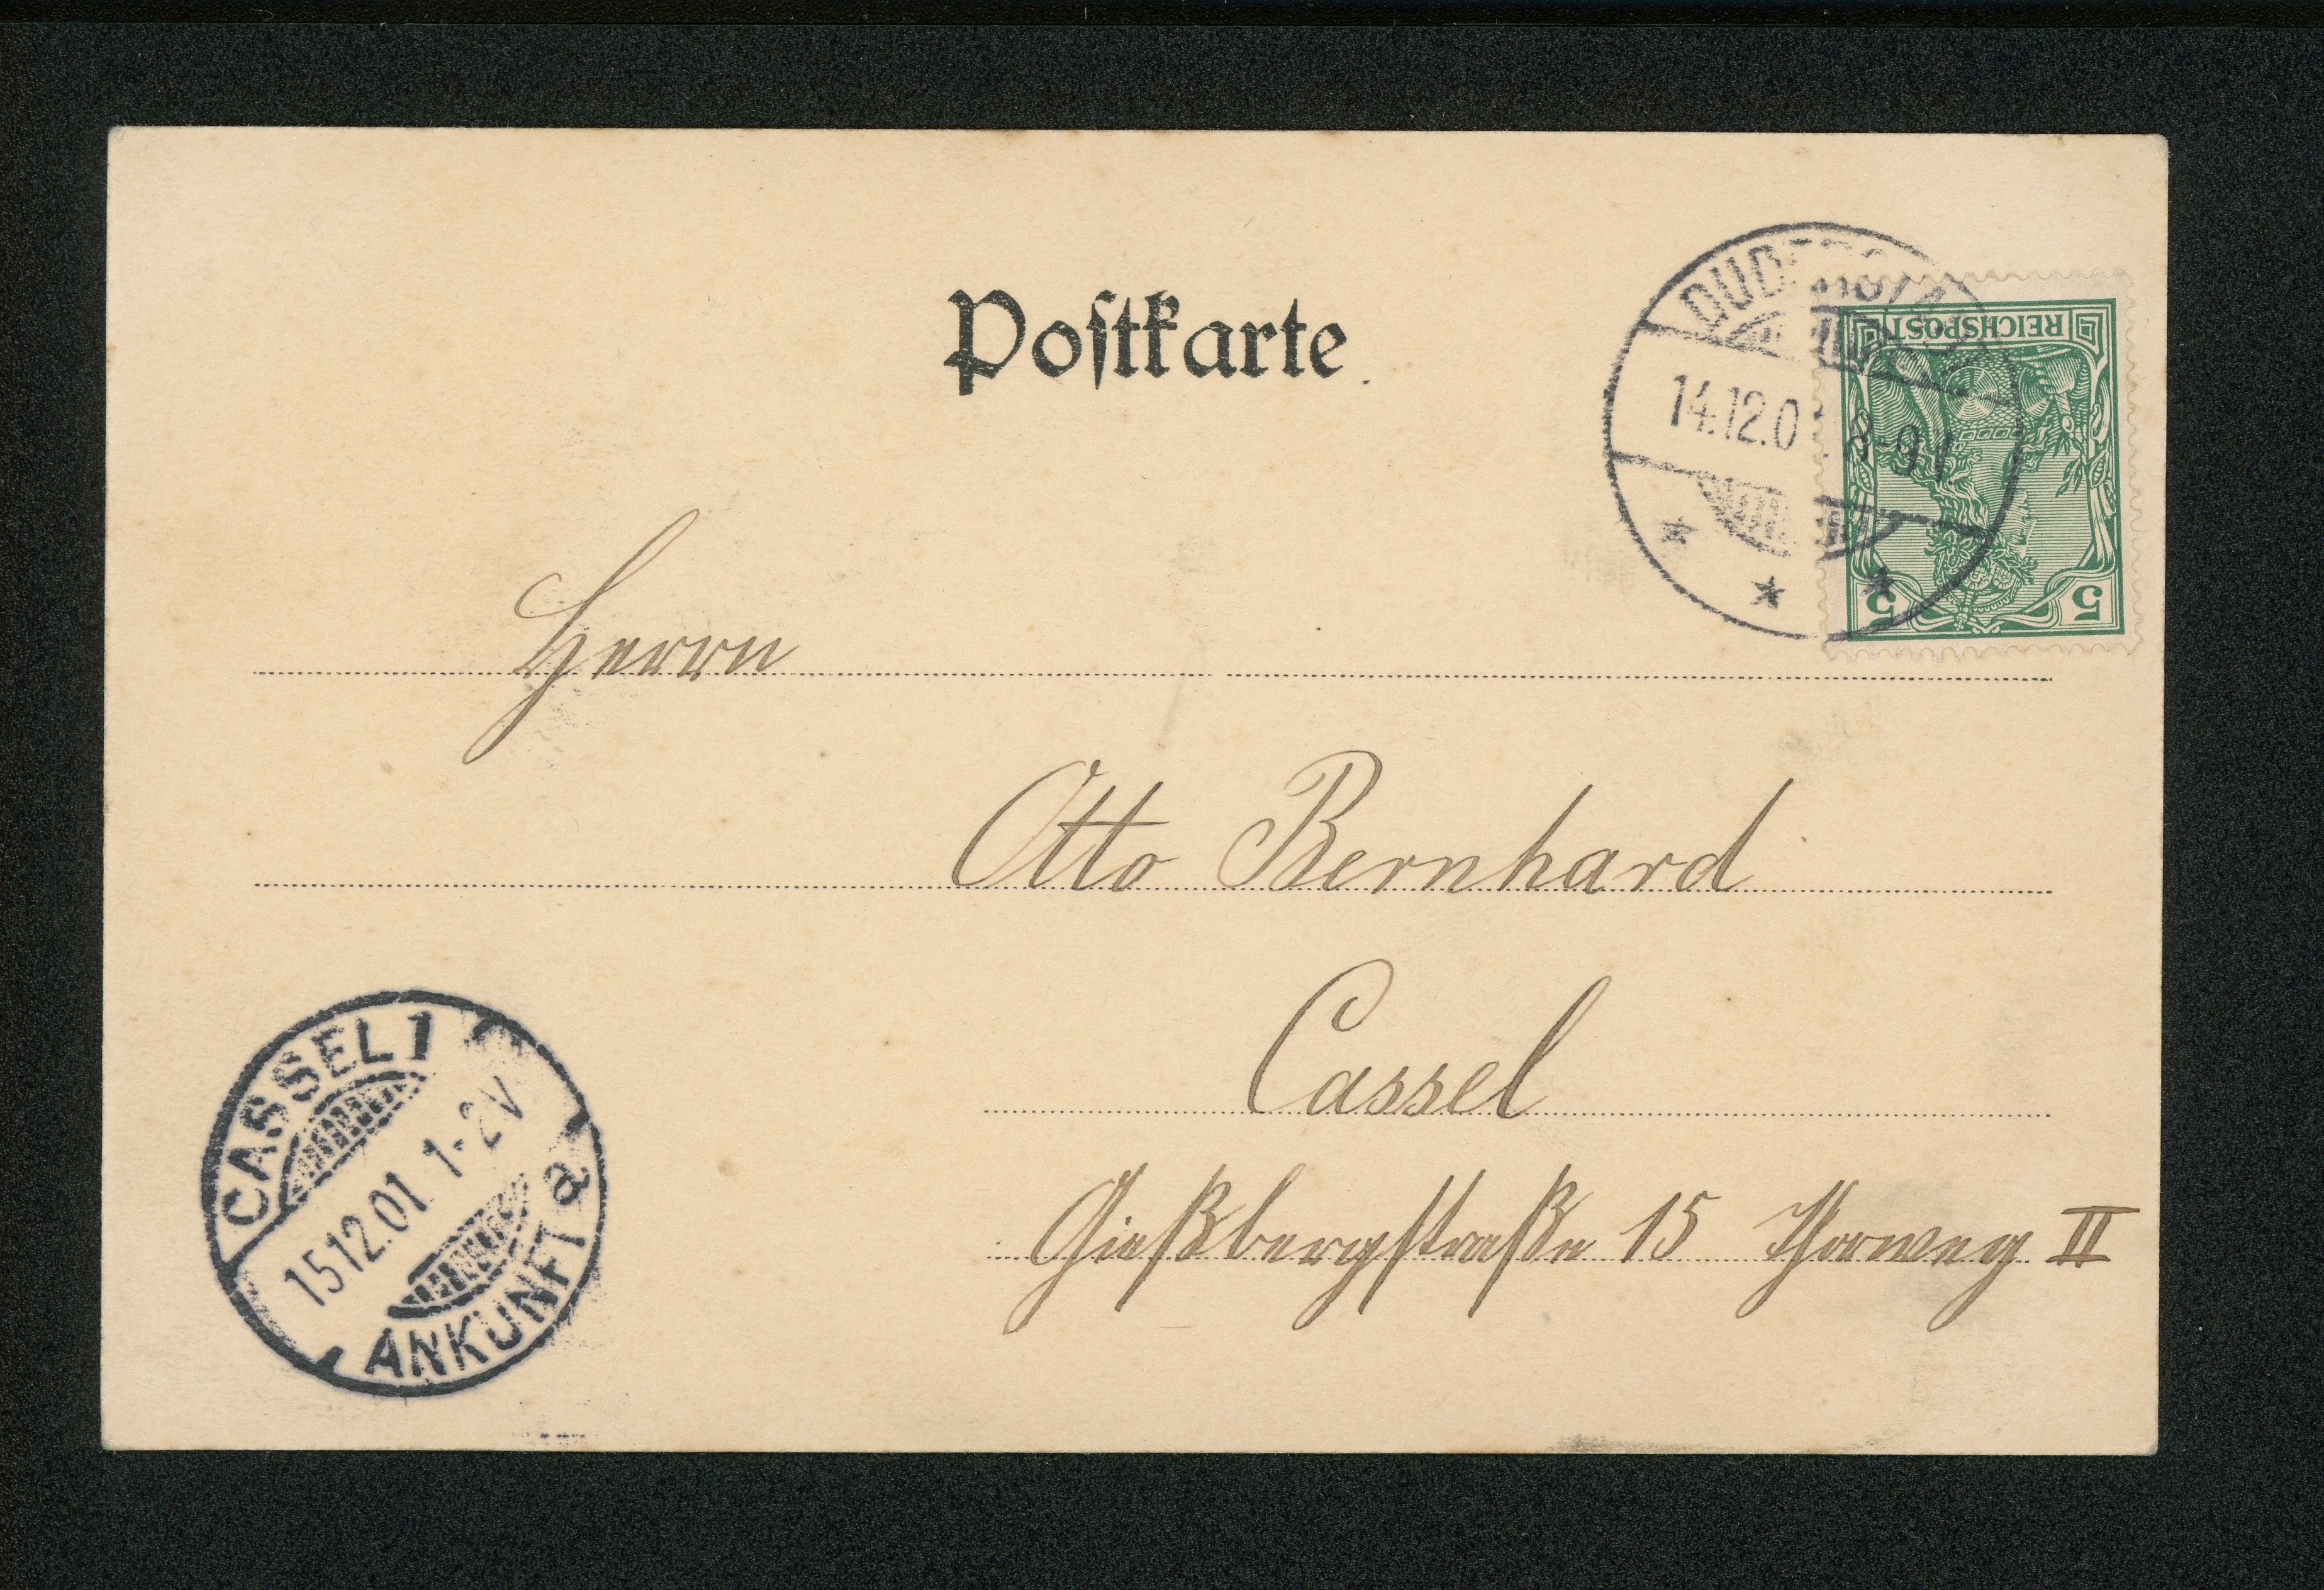 Postkarte
14.12.0 8-9 V
REICHSPOST
5 5
Herrn
Otto Bernhard
Cassel
Gießbergstraße 15 Thorweg II
CASSEL 1
15 12.01. 1-2V
a
ANKUNFT